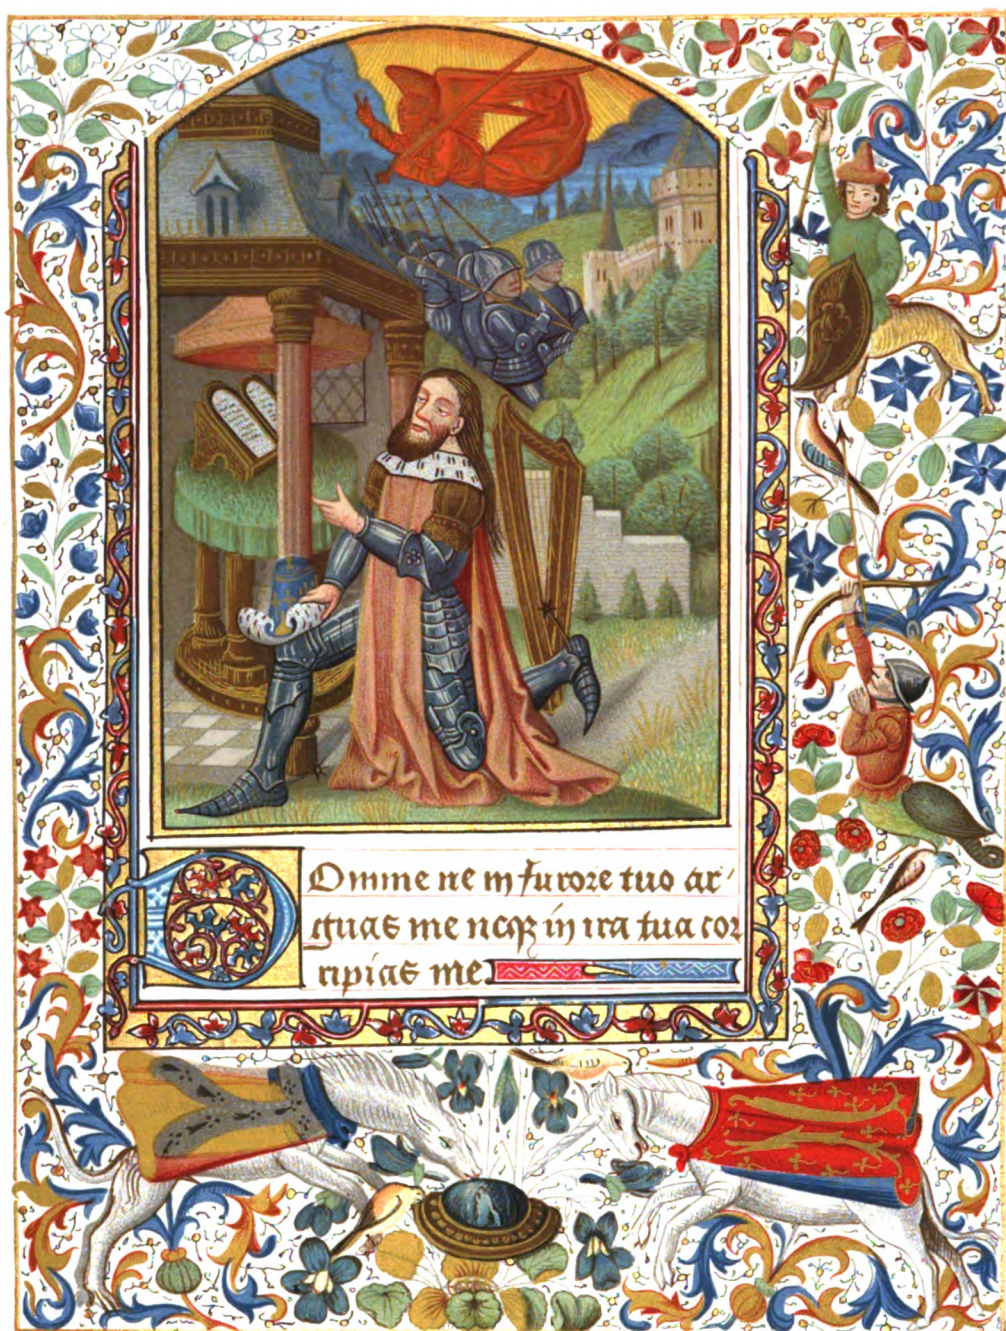 Domine ne in furore tuo ar-
guas me neqꝫ in ira tua cor
ripias me.